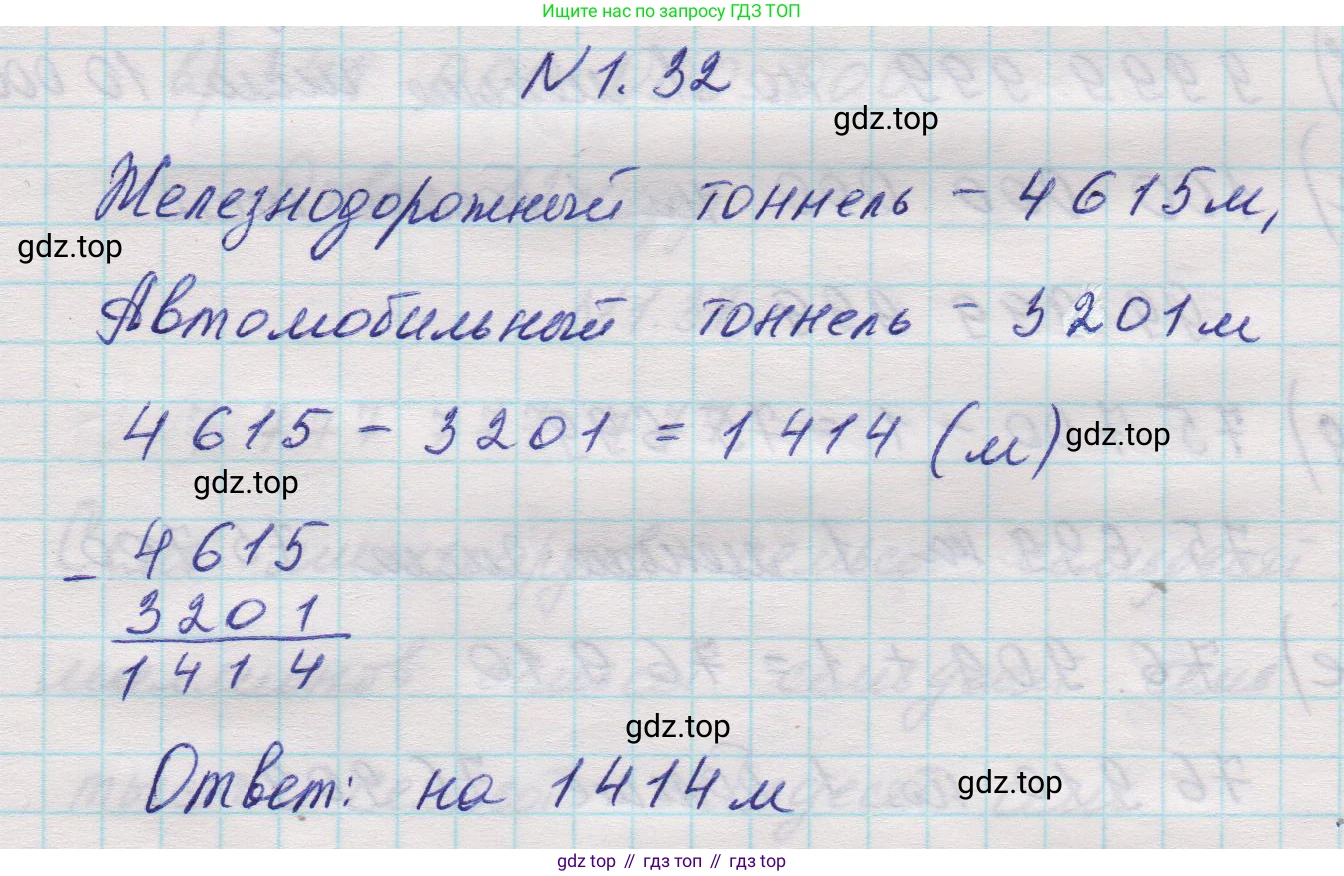 Ищите нас по запросу ГДЗ ТОП
N 1. 32
gdz.top
Железнодорожный тоннель - 4615м,
gdz.top
Автомобильный тоннель - 3201м
4615 - 3201 = 1414 (м)
gdz.top
gdz.top
- 4615
3201
1414
gdz.top
Ответ: на 1414м
gdz.top
gdz top // гдз топ // gdz top